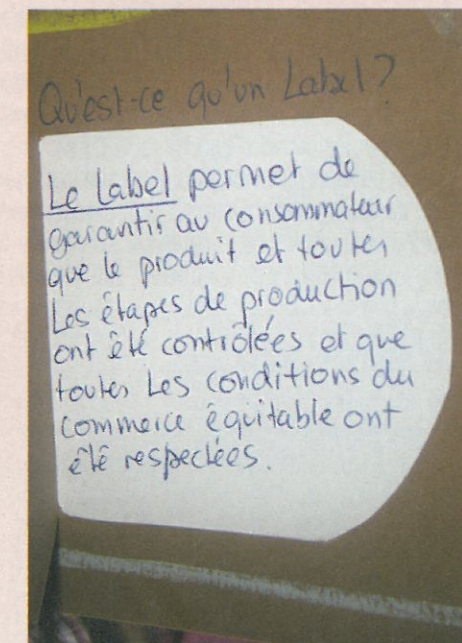 Qu'est-ce qu'un Label?
Le Label permet de
garantir au consommateur
que le produit et toutes
Les étapes de production
ont été contrôlées et que
toutes Les conditions du
commerce équitable ont
été respectées.